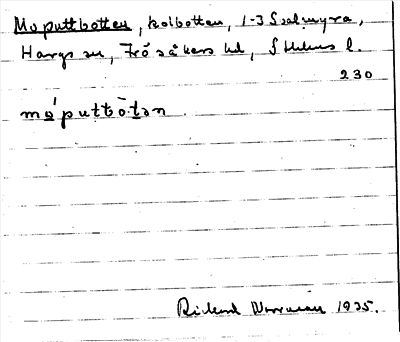 Moputtbotten, kolbotten, 1-3 Ssalmyra,
Hargs sn, Frösåkers hd, Sthlms l.
230
mo̱ˊputtbò̱tən
Rickard 1935.